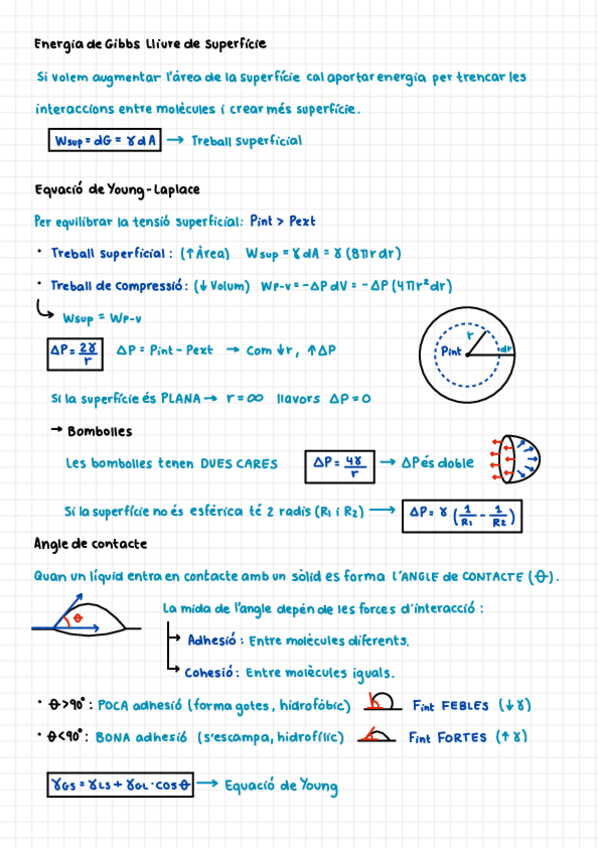 Energía de Gibbs Lliure de Superfície
Si volem augmentar l'àrea de la superfície cal aportar energia per trencar les
interaccions entre molècules i crear més superfície.
Wsup = dG = γ dA → Treball superficial
Equació de Young-Laplace
Per equilibrar la tensió superficial: Pint > Pext
• Treball superficial: (↑Àrea) Wsup = γ dA = γ (8πr dr)
• Treball de compressió: (↓ Volum) Wp-v = -ΔP dV = -ΔP (4πr² dr)
Wsup = Wp-v
ΔP = 2γ/r ΔP = Pint - Pext → Com ↓r, ↑ΔP
Pint r dr
Si la superfície és PLANA → r = ∞ llavors ΔP = 0
→ Bombolles
Les bombolles tenen DUES CARES ΔP = 4γ/r → ΔP és doble
Si la superfície no és esfèrica té 2 radis (R1 i R2) → ΔP = γ (1/R1 - 1/R2)
Angle de contacte
Quan un líquid entra en contacte amb un sòlid es forma l'ANGLE de CONTACTE (θ).
θ
La mida de l'angle depèn de les forces d'interacció:
→ Adhesió: Entre molècules diferents.
→ Cohesió: Entre molècules iguals.
• θ>90°: POCA adhesió (forma gotes, hidrofòbic) Fint FEBLES (↓γ)
• θ<90°: BONA adhesió (s'escampa, hidrofílic) Fint FORTES (↑γ)
γGS = γLS + γGL · cosθ → Equació de Young